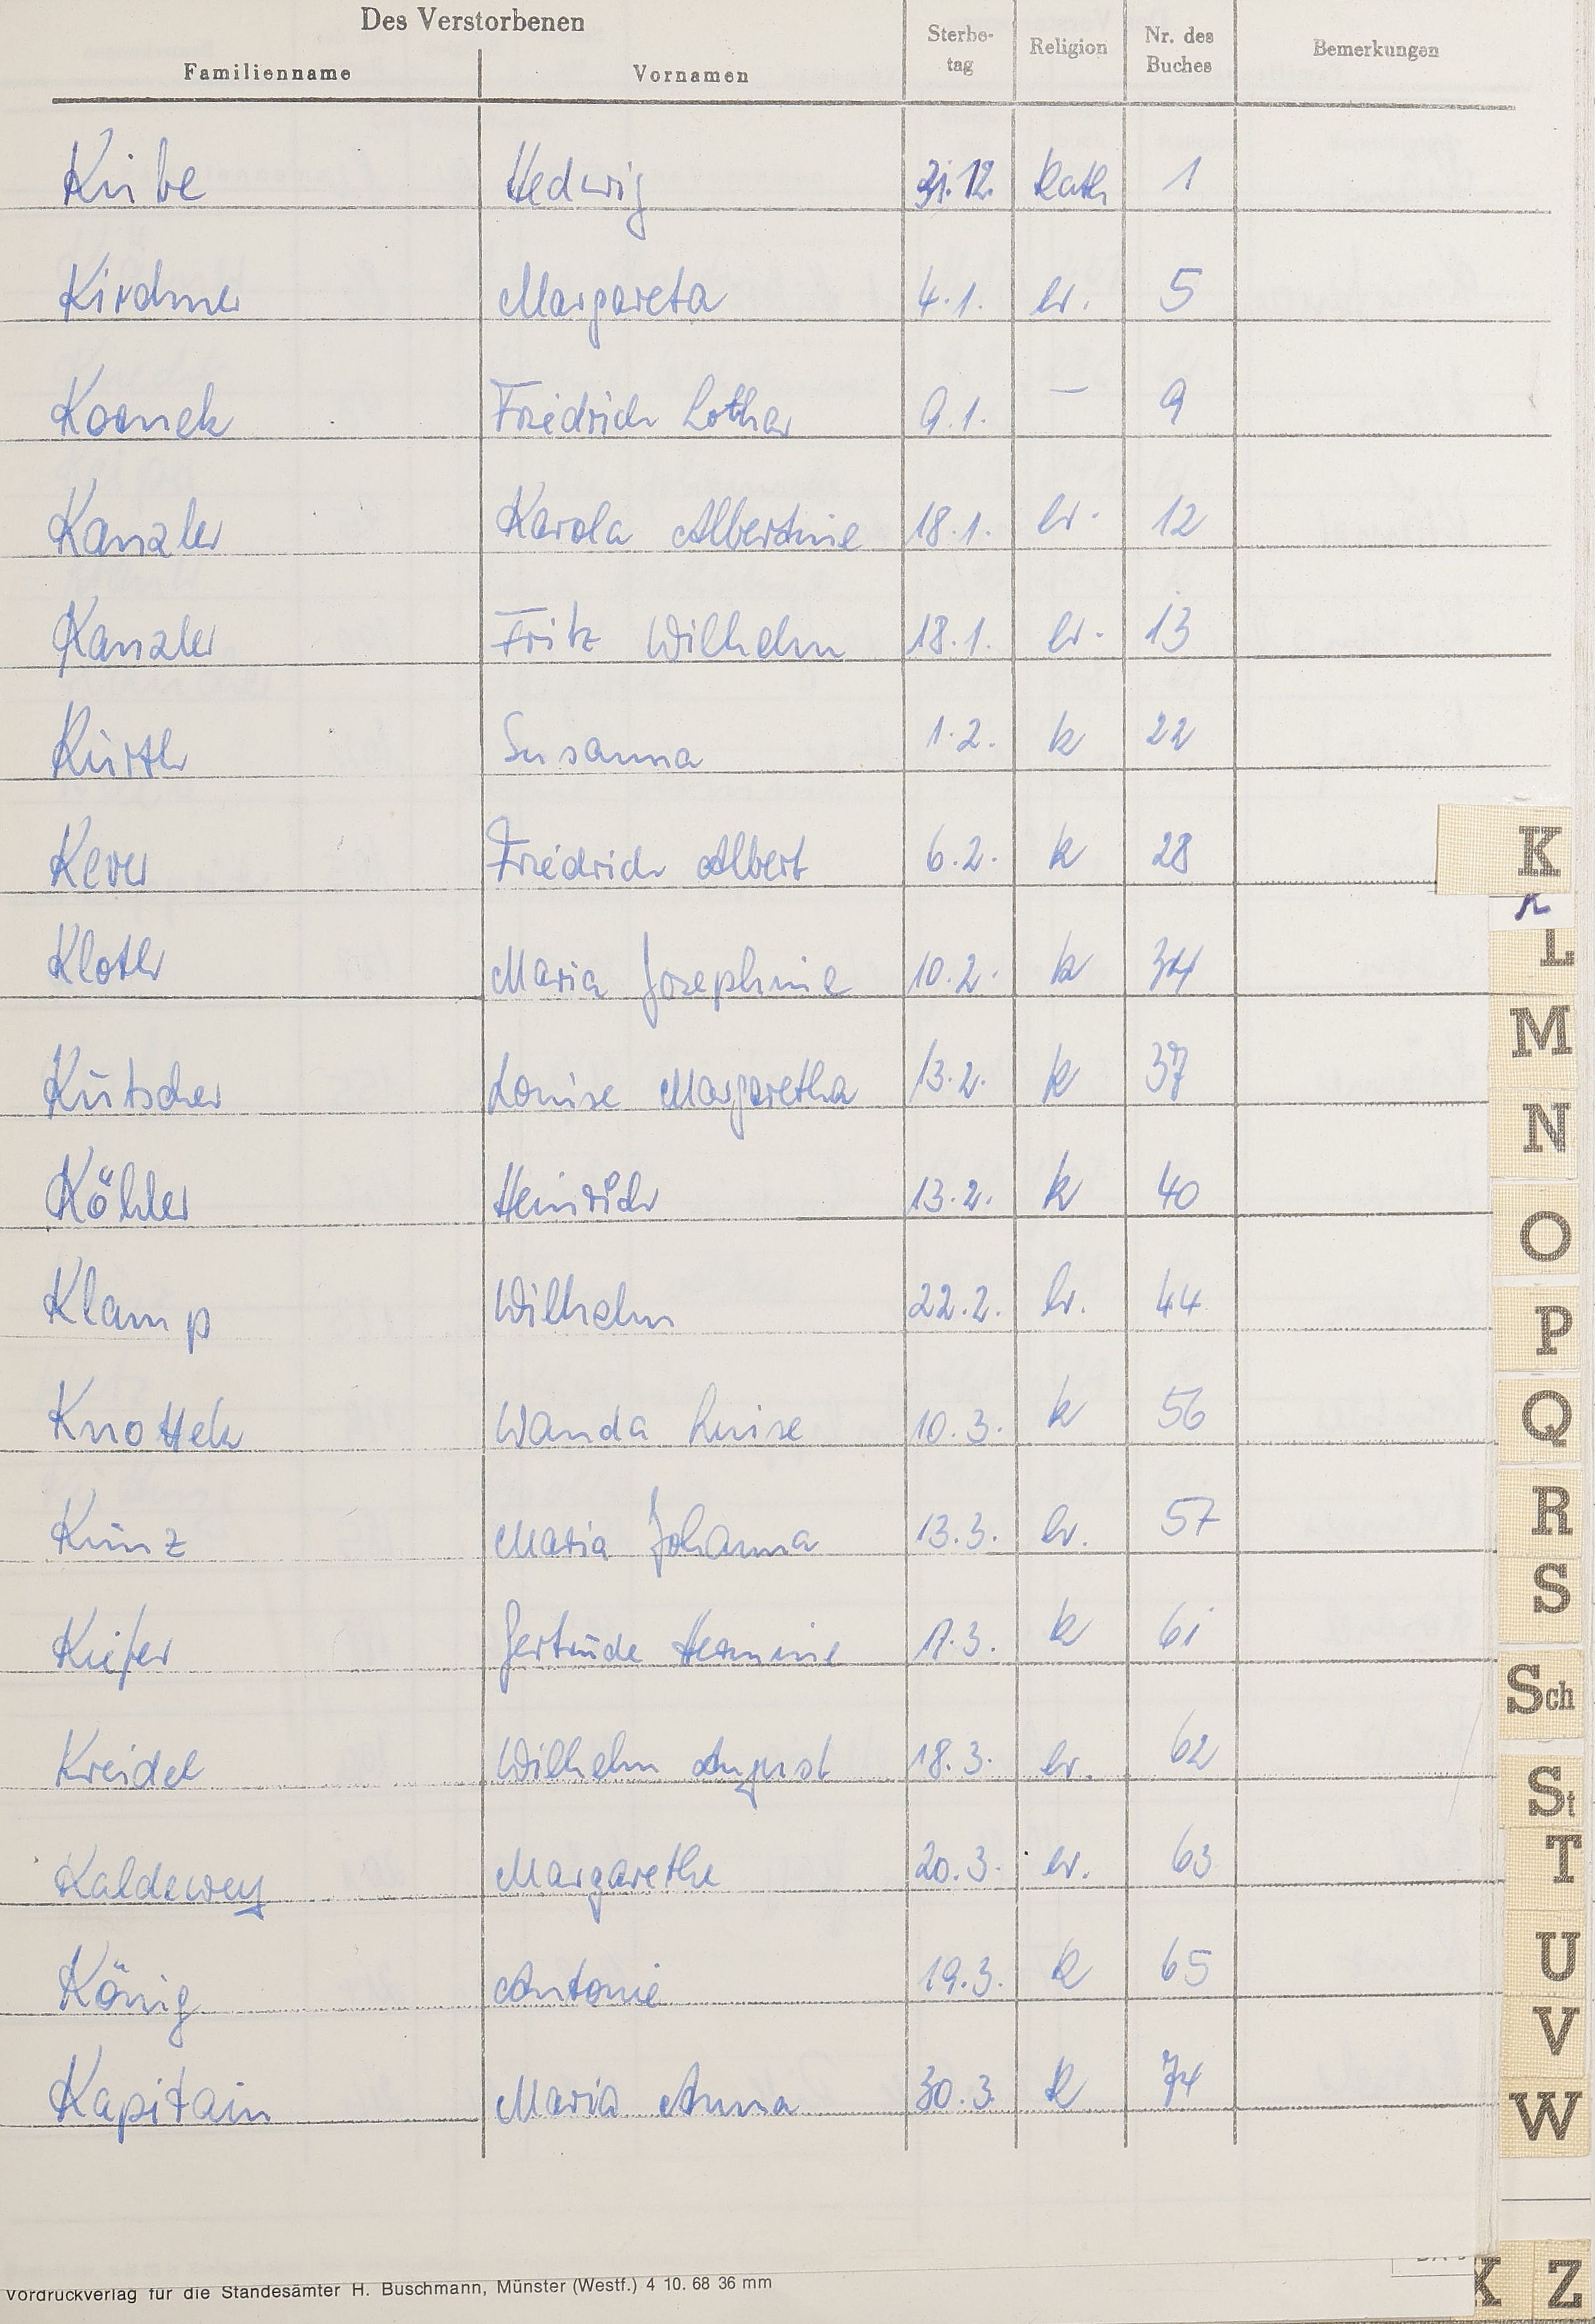 Des Verstorbenen
Familienname Vornamen Sterbe-tag Religion Nr. des Buches Bemerkungen
Kube Hedwig 31.12. kath 1
Kirchner Margareta 4.1. ev. 5
Friedrich Lothar 9.1. — 9
Kanzler Karola Albertine 18.1. ev. 12
Kanzler Fritz Wilhelm 18.1. ev. 13
Kürth Susanna 1.2. k 22
Kever Friedrich Albert 6.2. k 28
Kloth Maria Josephine 10.2. k 34
Kutscher Louise Margaretha 13.2. k 37
Köhler Heinrich 13.2. k 40
Klamp Wilhelm 22.2. ev. 44
Knottek Wanda Luise 10.3. k 56
Kunz Maria Johanna 13.3. ev. 57
Kiefer Gertrude Hermine 17.3. k 61
Kreidel Wilhelm August 18.3. ev. 62
Kaldewey Margarethe 20.3. ev. 63
König Antonie 19.3. k 65
Kapitain Maria Anna 30.3. k 74
K
K
L
M
N
O
P
Q
R
S
Sch
St
T
U
V
W
X Z
Vordruckverlag für die Standesämter H. Buschmann, Münster (Westf.) 4 10. 68 36 mm